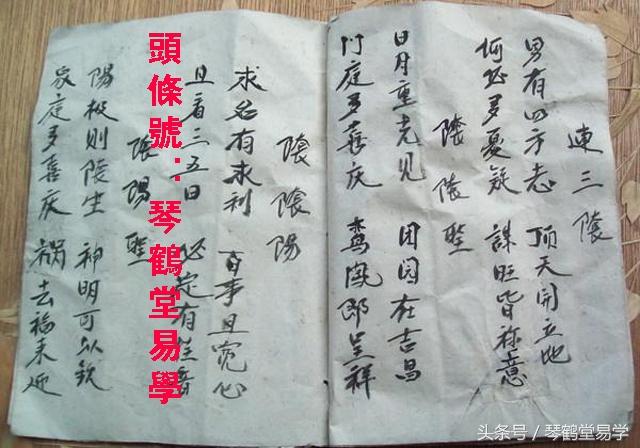 連三陰
男有四方志 頂天開立地
何必多憂疑 謀旺皆称意
陰陰聖
日月重光见 团园在吉昌
门庭多喜庆 鸾凤郎呈祥
陰陰陽
求名有求利 百事且宽心
且看三五日 必定有佳音
陰陽聖
陽极则陰生 神明可以
家庭多喜庆 祸去福来迎
頭條號：琴鶴堂易學
头条号 / 琴鹤堂易学